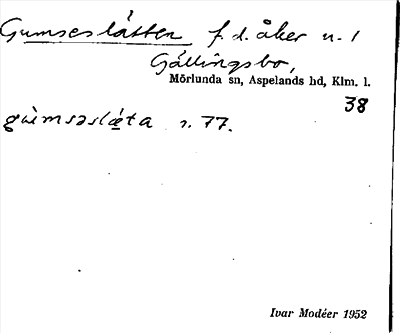 Gumseslåtten f. d. åker n. 1
Gällingsbo,
Mörlunda sn, Aspelands hd, Klm. l.
38
gùmsəslǽta r. 77.
Ivar Modéer 1952